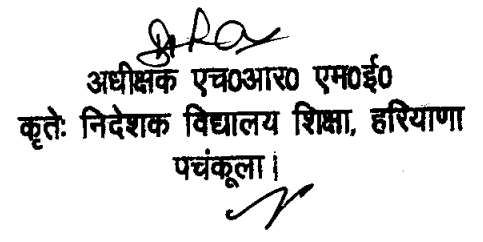 अधीक्षक एच0आर0 एम0ई0
कृतेः निदेशक विद्यालय शिक्षा, हरियाणा
पचंकूला।